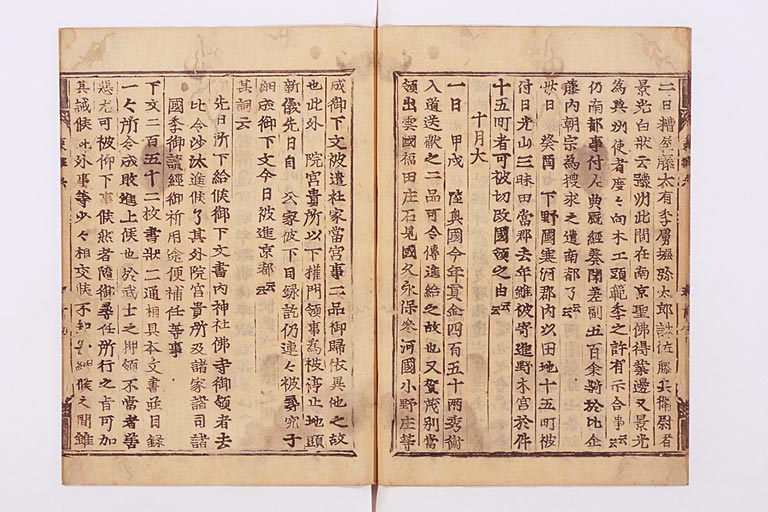 二日糟屋藤太有季虜堀弥太郎誅佐藤兵衛尉者
景光白状云豫州此間在南京聖佛得業邊又景光
為與州使者度々向木工頭範季之許有示合事云云
仍南都事付人典厩經奏聞差副五百余騎於比企
藤内朝宗為搜求之遣南都了云云
卅日 癸酉 下野國寒河郡内以田地十五町被
付日光山三昧田當郡去年雖被寄進野木宮於件
十五町者可被切改國領之由云云
十月大
一日 甲戌 陸奥國今年貢金四百五十兩秀衡
入道送獻之二品可令傳進給之故也又賀茂別當
領出雲國福田庄石見國久永保寒河國小野庄等
成御下文被遣社家當宮事二品御歸依異他之故
也此外 院宮貴所以下權門領事為被停止地頭
新儀先日自 公家被下目録訖仍連々被尋究子
細成御下文今日被進京都云云
其詞云
先日所下給候御下文書内神社佛寺御領者去
比令沙汰進候了其外院宮貴所及諸家諸司諸
國季御讀經御祈用途便補任等事
下文二百五十二枚書狀二通相具本文書並目録
一々所令成敗進上候也於武士之押領不當者善
惡尤可被仰下事候然者隨御尋任所行之旨可加
其誡候此外事等少々相交候不知子細候之間雖